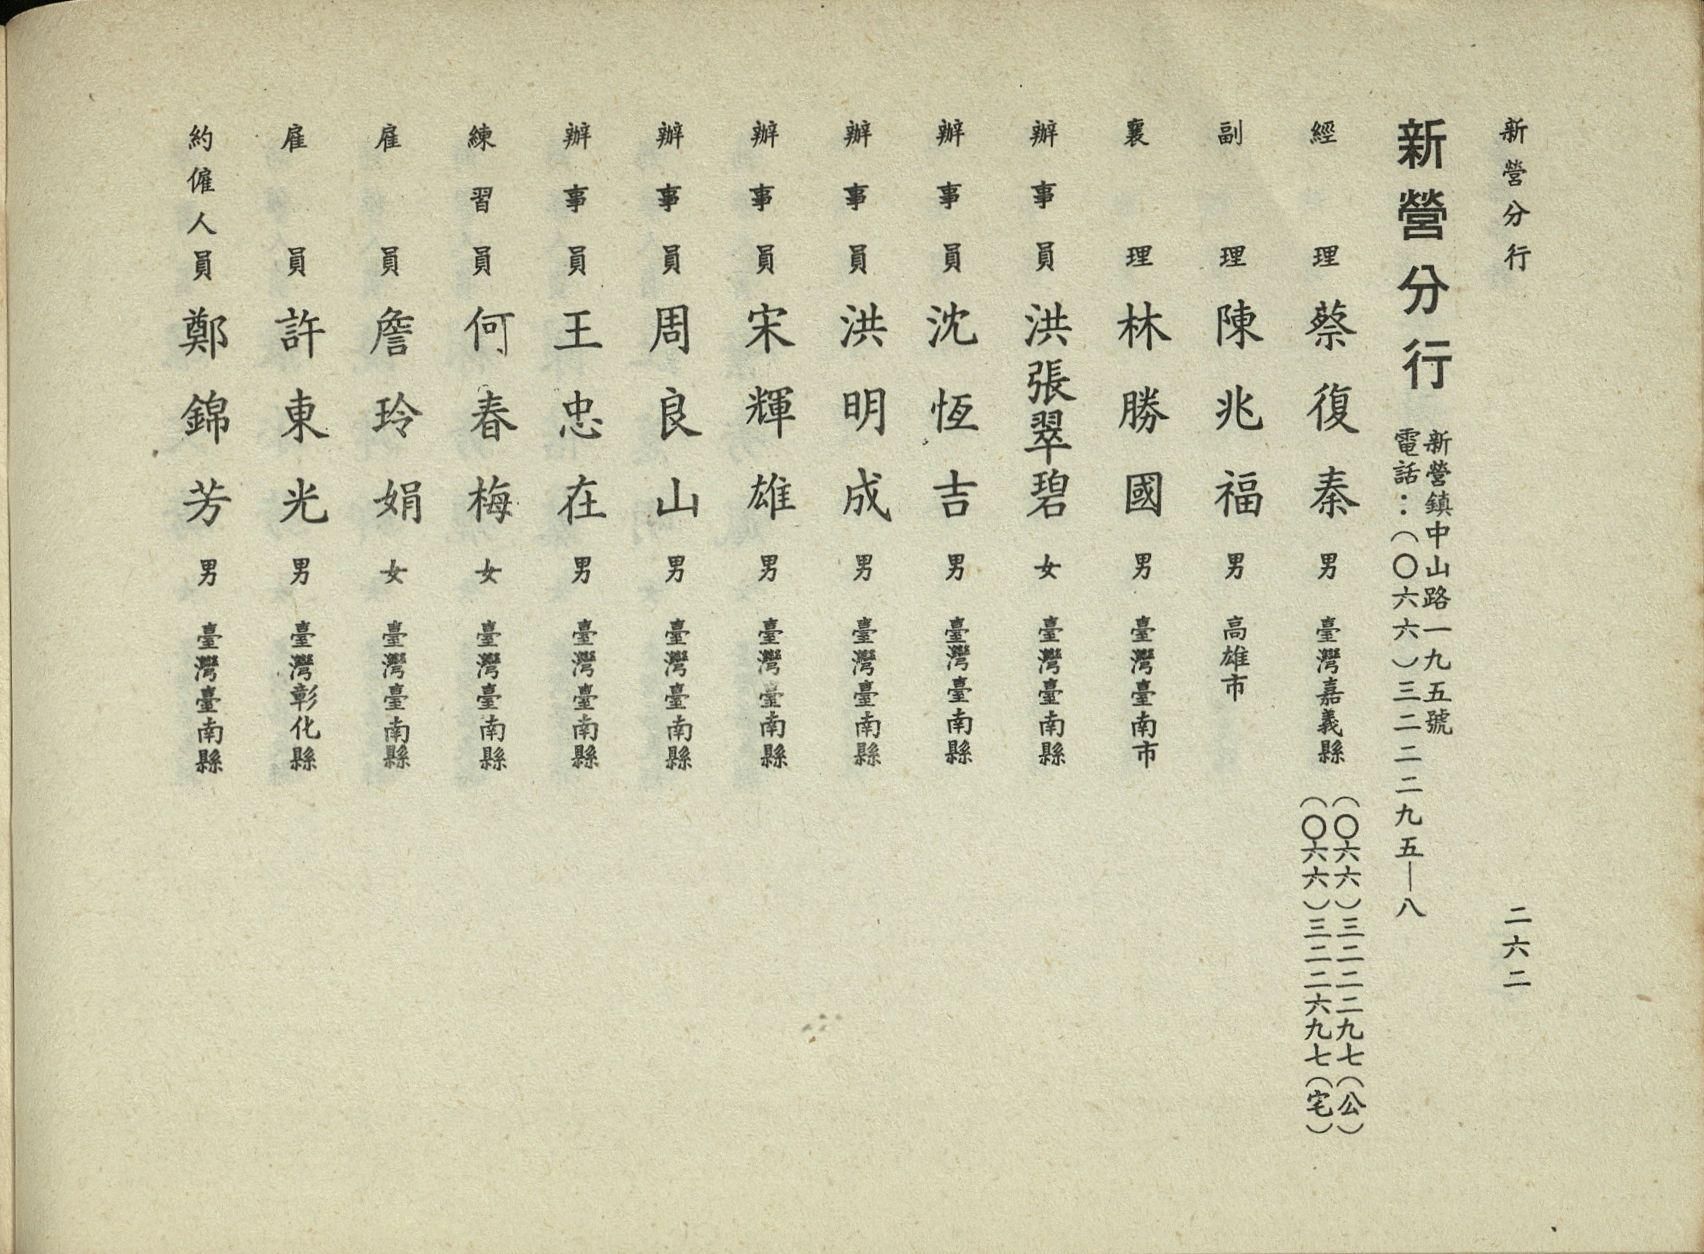 新營分行
二六二
新營分行
新營鎮中山路一九五號
電話：（〇六六）三二二二九五—八
經理 蔡復秦 男 臺灣嘉義縣
（〇六六）三二二二九七（公）
（〇六六）三二二六九七（宅）
副理 陳兆福 男 高雄市
襄理 林勝國 男 臺灣臺南市
辦事員 洪張翠碧 女 臺灣臺南縣
辦事員 沈恆吉 男 臺灣臺南縣
辦事員 洪明成 男 臺灣臺南縣
辦事員 宋輝雄 男 臺灣臺南縣
辦事員 周良山 男 臺灣臺南縣
辦事員 王忠在 男 臺灣臺南縣
練習員 何春梅 女 臺灣臺南縣
雇員 詹玲娟 女 臺灣臺南縣
雇員 許東光 男 臺灣彰化縣
約僱人員 鄭錦芳 男 臺灣臺南縣